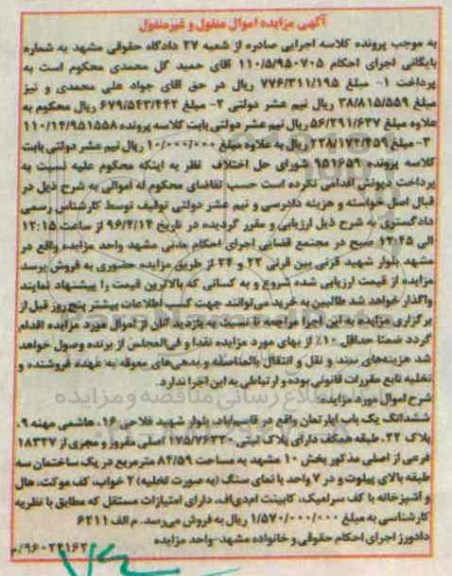 آگهی مزایده اموال منقول و غیرمنقول
به موجب پرونده کلاسه اجرایی صادره از شعبه ۲۷ دادگاه حقوقی مشهد به شماره
بایگانی اجرای احکام ۱۱۰/۵/۹۵۰۷۰۵ آقای حمید گل محمدی محکوم است به
پرداخت ۱- مبلغ ۷۷۶/۳۱۱/۱۹۵ ریال در حق آقای جواد علی محمدی و نیز
مبلغ ۳۸/۸۱۵/۵۵۹ ریال نیم عشر دولتی ۲- مبلغ ۶۷۹/۵۴۳/۴۴۲ ریال محکوم به
علاوه مبلغ ۵۶/۲۹۱/۶۳۷ ریال نیم عشر دولتی بابت کلاسه پرونده ۱۱۰/۱۴/۹۵۱۵۵۸
۳- مبلغ ۲۲۸/۱۷۲/۴۵۹ ریال به علاوه مبلغ ۱۰/۰۰۰/۰۰۰ ریال نیم عشر دولتی بابت
کلاسه پرونده ۹۵۱۶۵۹ شورای حل اختلاف نظر به اینکه محکوم علیه نسبت به
پرداخت دیونش اقدامی نکرده است حسب تقاضای محکوم له اموالی به شرح ذیل در
قبال اصل خواسته و هزینه دادرسی و نیم عشر دولتی توقیف توسط کارشناس رسمی
دادگستری به شرح ذیل ارزیابی و مقرر گردیده در تاریخ ۹۶/۴/۱۴ از ساعت ۱۲:۱۵
الی ۱۲:۴۵ صبح در مجتمع قضائی اجرای احکام مدنی مشهد واحد مزایده واقع در
مشهد بلوار شهید قرنی بین قرنی ۲۲ و ۲۴ از طریق مزایده حضوری به فروش برسد
مزایده از قیمت ارزیابی شده شروع و به کسانی که بالاترین قیمت را پیشنهاد نمایند
واگذار خواهد شد طالبین به خرید می‌توانند جهت کسب اطلاعات بیشتر پنج روز قبل از
برگزاری مزایده به این اجرا مراجعه تا نسبت به بازدید آنان از اموال مورد مزایده اقدام
گردد ضمنا حداقل ۱۰٪ از بهای مورد مزایده نقدا و فی‌المجلس از برنده وصول خواهد
شد هزینه‌های سند و نقل و انتقال بالمناصفه و بدهی‌های معوقه به عهده فروشنده و
تخلیه تابع مقررات قانونی بوده و ارتباطی به این اجرا ندارد.
شرح اموال مورد مزایده:
ششدانگ یک باب آپارتمان واقع در قاسم‌آباد، بلوار شهید فلاحی ۱۶، هاشمی مهنه ۹،
پلاک ۲۲، طبقه همکف دارای پلاک ثبتی ۱۷۵/۷۶۳۳۰ اصلی مفروز و مجزی از ۱۸۳۲۷
فرعی از اصلی مذکور بخش ۱۰ مشهد به مساحت ۸۴/۵۹ مترمربع در یک ساختمان سه
طبقه بالای پیلوت و در ۷ واحد با نمای سنگ (به صورت تخلیه) ۲ خواب، کف موکت، هال
و آشپزخانه با کف سرامیک، کابینت ام‌دی‌اف، دارای امتیازات مستقل که مطابق با نظریه
کارشناسی به مبلغ ۱/۵۷۰/۰۰۰/۰۰۰ ریال به فروش می‌رسد. م الف ۶۲۱۱
دادورز اجرای احکام حقوقی و خانواده مشهد- واحد مزایده
۹۶۰۲۲۱۶۲/م